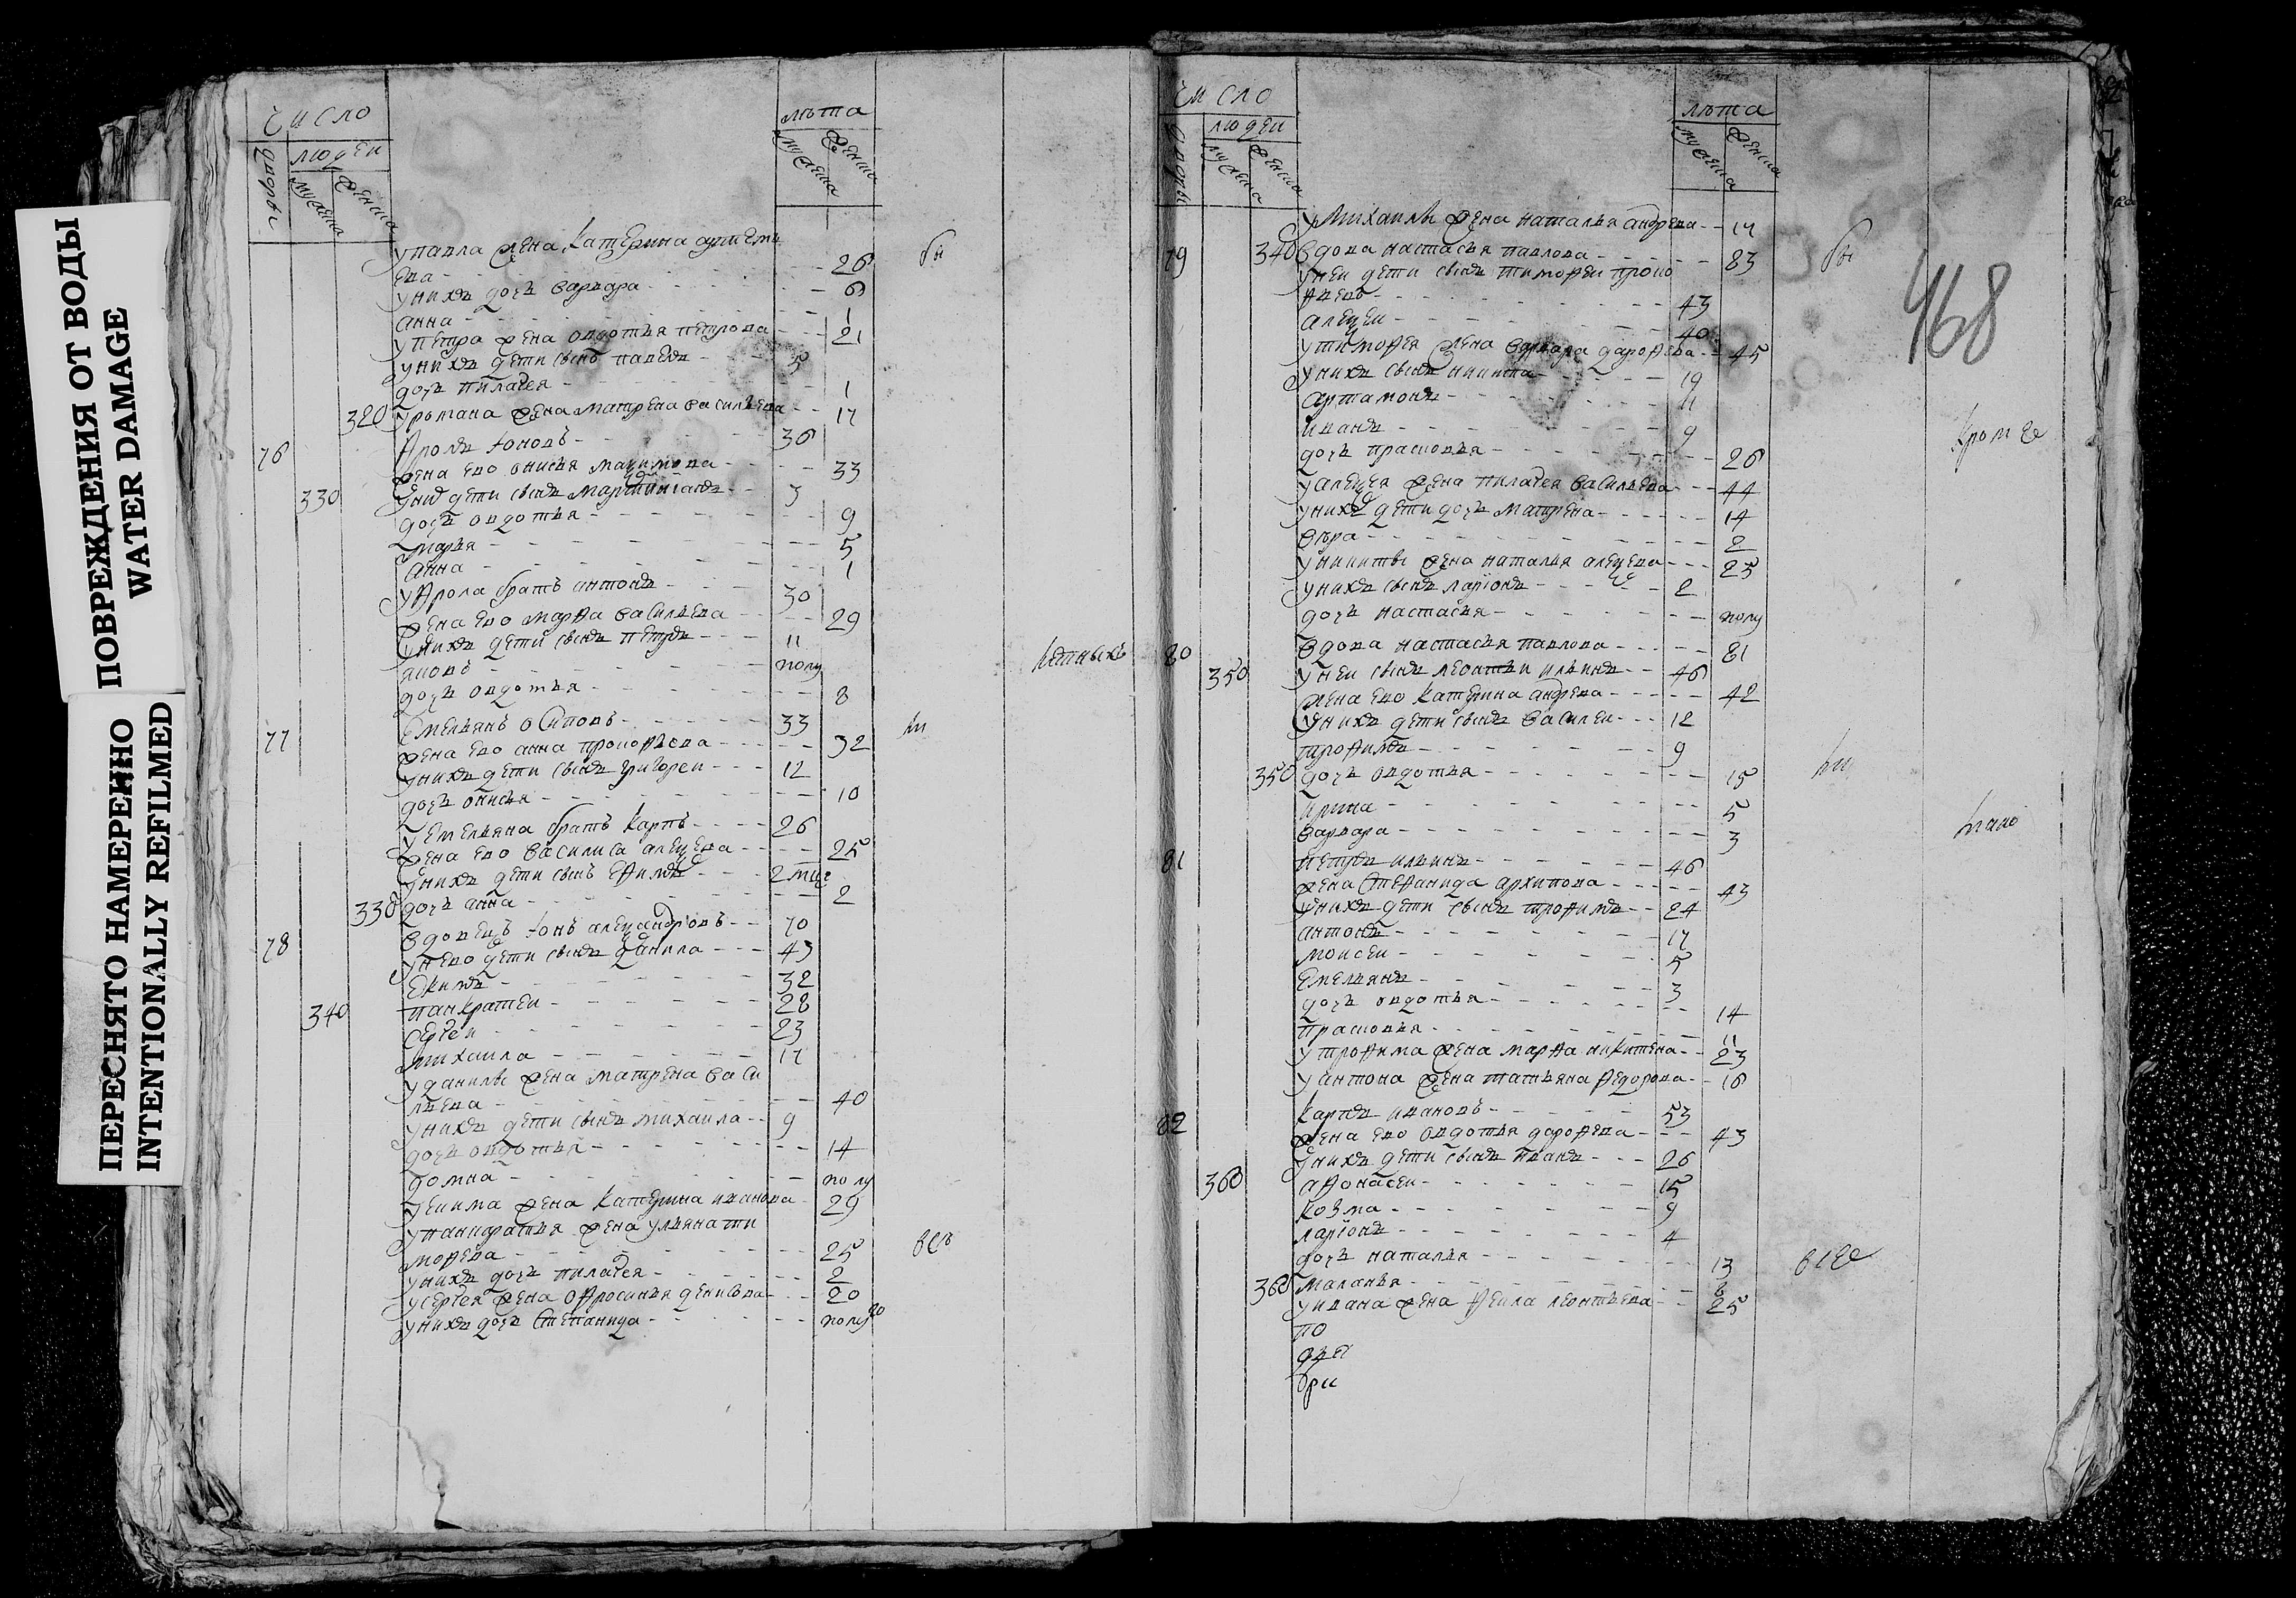 ПОВРЕЖДЕНИЯ ОТ ВОДЫ
WATER DAMAGE
ПЕРЕСНЯТО НАМЕРЕННО
INTENTIONALLY REFILMED
число
дворы
людеи
мужеска
женска
лѣта
мужеска
женска
у павла жена катерина артеми
ева 26
у нихъ дочь варвара 6
анна 1
у петра жена овдотья петрова 21
у нихъ дети сынъ павелъ 5
дочь пилагея 1
320 у романа жена матрена васильева 17
76 фролъ ионовъ 36
жена ево онисья 33
330 дети сынъ 3
дочь овдотья 9
марья 5
анна 1
у фрола братъ антонъ 30
жена ево марфа васильева 29
у нихъ дети сынъ петръ 11
яковъ полу
дочь овдотья 8
77 емельянъ осиповъ 33
жена ево анна прокофьева 32
у нихъ дети сынъ григореи 12
дочь онисья 10
у емельяна братъ карпъ 26
жена ево василиса алексеева 25
у нихъ дети сынъ ефимъ 2 мце
330 дочь анна 2
78 вдовецъ ионъ александровъ 70
у нево дети сынъ данила 43
екимъ 32
340 панкратеи 28
сергеи 23
михаила 17
у данилы жена матрена васи
льева 40
у нихъ дети сынъ михаила 9
дочь овдотья 14
домна полу
у екима жена катерина иванова 29
у панкратья жена ульяна ти
мофева 25
у нихъ дочь пилагея 2
у сергея жена офросинья денисова 20
у нихъ дочь степанида полу
бы
ли
все
число
дворы
людеи
мужеска
женска
лѣта
мужеска
женска
468
у михаилы жена наталья андрева 17
79 340 вдова настасья павлова 83
у неи дети сынъ тимофеи проко
фьевъ 43
алексеи 40
у тимофея жена варвара дарофева 45
у нихъ сынъ никита 19
артамонъ 11
иванъ 9
дочь прасковья 26
у алексея жена пилагея васильева 44
у нихъ дети дочь матрена 14
вѣра 2
у никиты жена наталья алексева 25
у нихъ сынъ ларионъ 2
дочь настасья полу
80 вдова настасья павлова 81
350 у неи сынъ леонтеи ильинъ 46
жена ево катерина андрева 42
у нихъ дети сынъ василеи 12
трофимъ 9
350 дочь овдотья 15
ирина 5
варвара 3
81 петръ ильинъ 46
жена степанида архипова 43
у нихъ дети сынъ трофимъ 24
антонъ 17
моисеи 5
емельянъ 3
дочь овдотья 14
прасковья 11
у трофима жена марфа никитена 23
у антона жена татьяна федорова 16
82 карпъ ивановъ 53
жена ево овдотья дарофева 43
у нихъ дети сынъ иванъ 26
360 афонасеи 15
козма 9
ларионъ 4
дочь наталья 13
360 маланья 6
у ивана жена фекла леонтьева 25
по
бы
кроме
тако